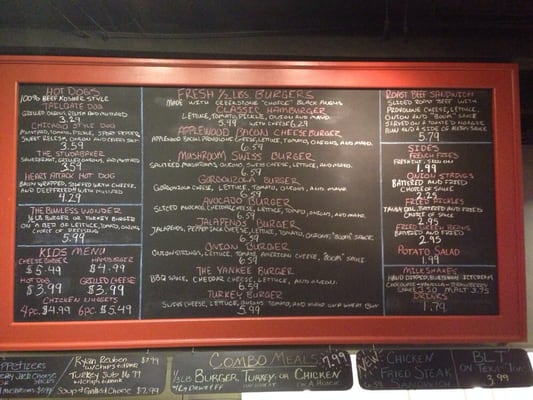 HOT DOGS
100% BEEF KOSHER STYLE
TAILGATE DOG
GRILLED ONIONS, RELISH AND MUSTARD
3.29
CHICAGO STYLE DOG
MUSTARD, TOMATO, PICKLE, SPORT PEPPER,
SWEET RELISH, ONION AND CELERY SALT
3.59
THE STUDEBAKER
SAUERKRAUT, GRILLED ONIONS, AND MUSTARD
3.59
HEART ATTACK HOT DOG
BACON WRAPPED, STUFFED WITH CHEESE,
AND DEEPFRIED WITH MUSTARD
4.29
THE BUNLESS WONDER
1/2 LB BURGER OR TURKEY BURGER
ON A BED OF LETTUCE, TOMATO, ONION
CHOICE OF DRESSING
5.99
KIDS MENU
CHEESE BURGER HAMBURGER
$5.49 $4.99
HOT DOG GRILLED CHEESE
$3.99 $3.99
CHICKEN NUGGETS
4PC. $4.99 6PC. $5.49
FRESH 1/2 LBS BURGERS
MADE WITH CREEKSTONE "CHOICE" BLACK ANGUS
CLASSIC HAMBURGER
LETTUCE, TOMATO, PICKLE, ONION AND MAYO.
5.99 WITH CHEESE 6.29
APPLEWOOD BACON CHEESEBURGER
APPLEWOOD BACON, PROVOLONE CHEESE, LETTUCE, TOMATO, ONIONS, AND MAYO.
6.59
MUSHROOM SWISS BURGER
SAUTEED MUSHROOMS, ONIONS, SWISS CHEESE, LETTUCE, AND MAYO.
6.59
GORGONZOLA BURGER
GORGONZOLA CHEESE, LETTUCE, TOMATO, ONION, AND MAYO.
6.59
AVOCADO BURGER
SLICED AVOCADO, CHEESE, LETTUCE, TOMATO, ONIONS, AND MAYO.
6.59
JALAPENOS BURGER
JALAPENOS, PEPPER JACK CHEESE, LETTUCE, TOMATO, ONIONS, "BOOM" SAUCE
6.59
ONION BURGER
ONION STRINGS, LETTUCE, TOMATO, AMERICAN CHEESE, "BOOM" SAUCE
6.59
THE YANKEE BURGER
BBQ SAUCE, CHEDDAR CHEESE, LETTUCE, AND ONION.
6.59
TURKEY BURGER
SWISS CHEESE, LETTUCE, ONIONS, TOMATO, AND MAYO ON A WHEAT BUN
5.99
ROAST BEEF SANDWICH
SLICED ROAST BEEF WITH
PROVOLONE CHEESE, LETTUCE,
ONION AND "BOOM" SAUCE
SERVED ON A TOASTED HOAGIE
BUN AND A SIDE OF AUJUS SAUCE
5.79
SIDES
FRENCH FRIES
1.99
ONION STRINGS
BATTERED AND FRIED
CHOICE OF SAUCE
2.25
FRIED PICKLES
BATTERED AND FRIED
CHOICE OF SAUCE
2.95
FRIED GREEN BEANS
BATTERED AND FRIED
2.95
POTATO SALAD
1.99
MILKSHAKES
HAND DIPPED, BLUEBUNNY ICECREAM
CHOCOLATE-VANILLA-STRAWBERRY
LARGE 3.50 MALT 3.75
DRINKS
1.79
APPETIZERS
JACK CHEESE
STICKS
MUSHROOMS
RYAN REUBEN $7.99
W/CHIPS
TURKEY SUB 6.79
SOUP & GRILLED CHEESE $7.99
COMBO MEALS 7.99
1/3 LB BURGER, TURKEY OR CHICKEN
ON A HOAGIE
NEW CHICKEN
FRIED STEAK
SANDWICH
6.59
BLT
ON TEXAS TOAST
3.99